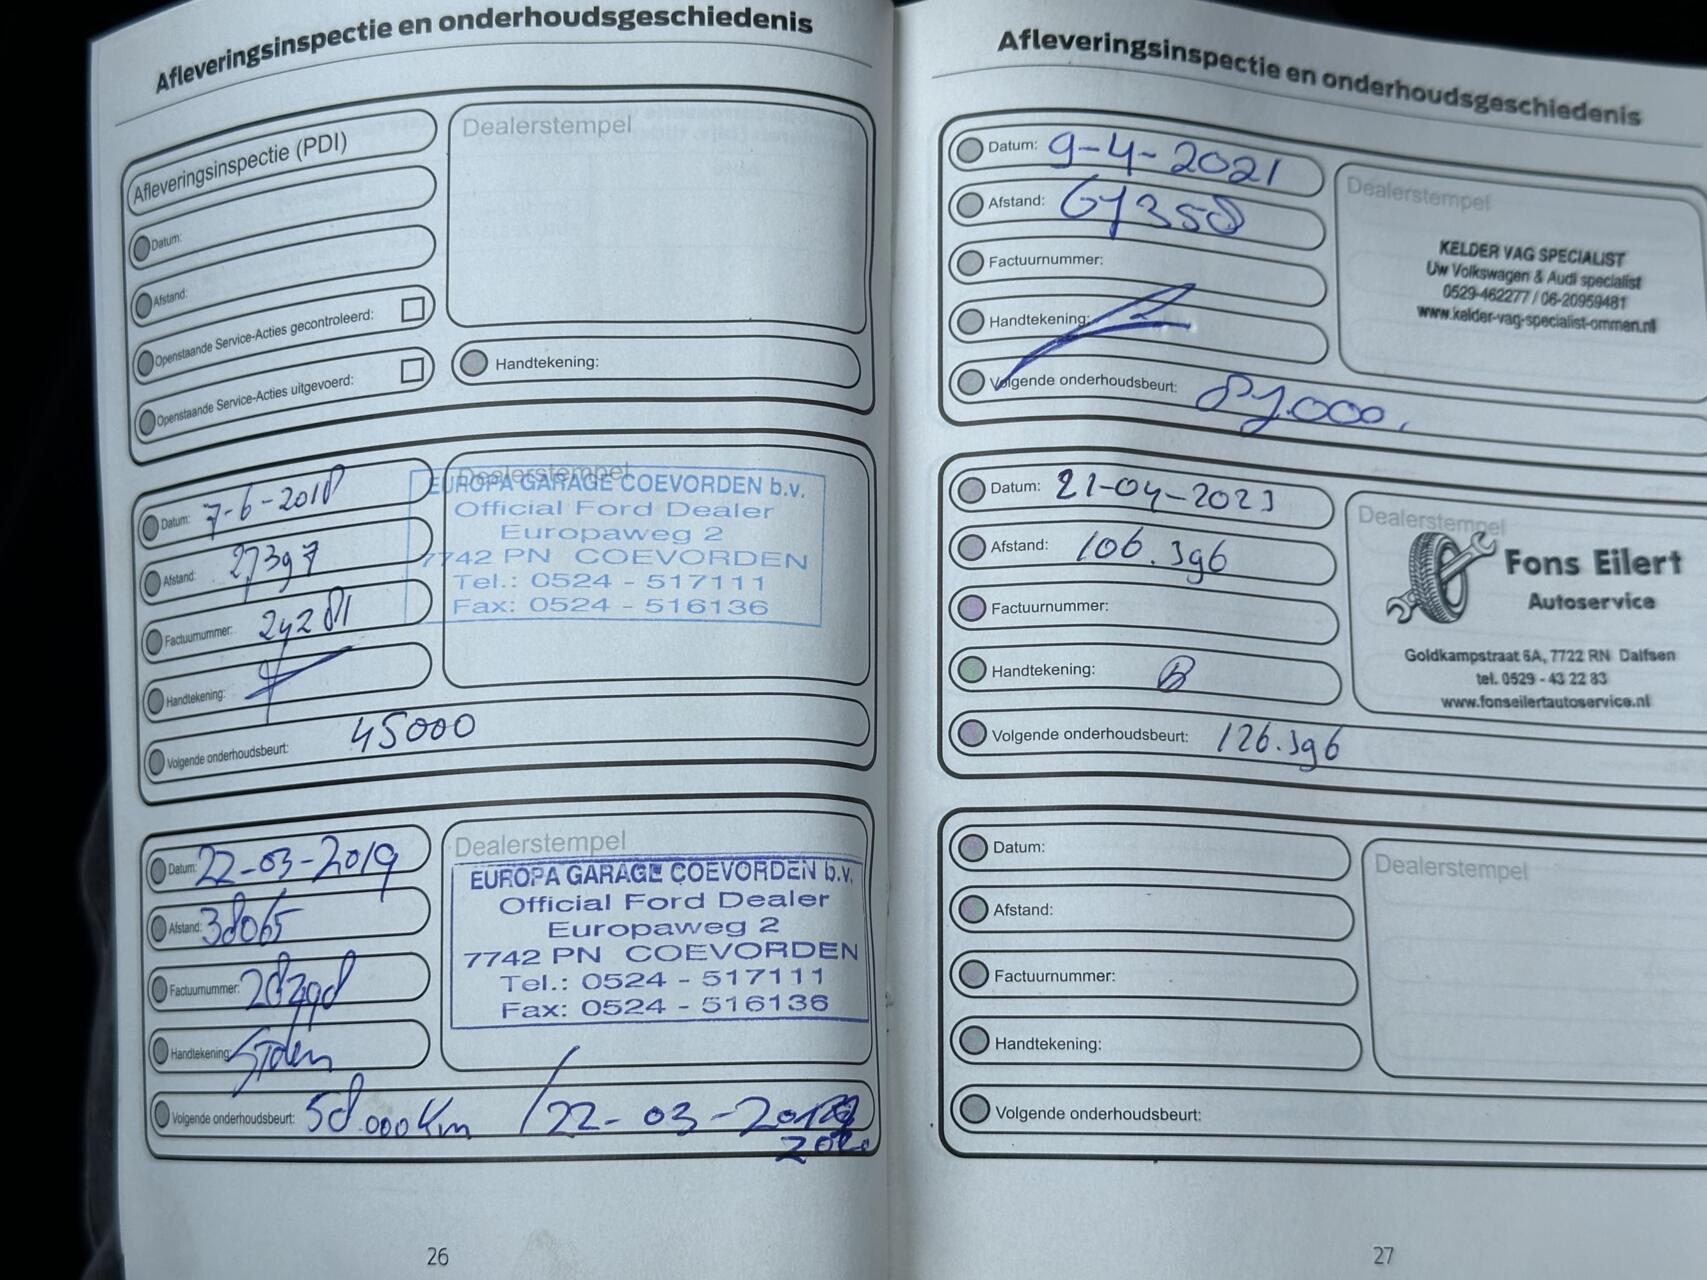 Afleveringsinspectie en onderhoudsgeschiedenis
Afleveringsinspectie (PDI)
Datum:
Afstand:
Openstaande Service-Acties gecontroleerd:
Openstaande Service-Acties uitgevoerd:
Dealerstempel
Handtekening:
Datum: 7-6-2018
Afstand: 27397
Factuurnummer:
Handtekening:
Volgende onderhoudsbeurt: 45000
Dealerstempel
EUROPA GARAGE COEVORDEN b.v.
Official Ford Dealer
Europaweg 2
7742 PN COEVORDEN
Tel.: 0524 - 517111
Fax: 0524 - 516136
Datum: 22-03-2019
Afstand: 38065
Factuurnummer:
Handtekening:
Volgende onderhoudsbeurt: 58.000 Km / 22-03-
2020
Dealerstempel
EUROPA GARAGE COEVORDEN b.v.
Official Ford Dealer
Europaweg 2
7742 PN COEVORDEN
Tel.: 0524 - 517111
Fax: 0524 - 516136
26
Afleveringsinspectie en onderhoudsgeschiedenis
Datum: 9-4-2021
Afstand:
Factuurnummer:
Handtekening:
Volgende onderhoudsbeurt:
Dealerstempel
KELDER VAG SPECIALIST
Uw Volkswagen & Audi specialist
0529-462277 / 06-20959481
www.kelder-vag-specialist-ommen.nl
Datum: 21-04-2023
Afstand: 106.396
Factuurnummer:
Handtekening:
Volgende onderhoudsbeurt: 126.396
Dealerstempel
Fons Eilert
Autoservice
Goldkampstraat 6A, 7722 RN Dalfsen
tel. 0529 - 43 22 83
www.fonseilertautoservice.nl
Datum:
Afstand:
Factuurnummer:
Handtekening:
Volgende onderhoudsbeurt:
Dealerstempel
27